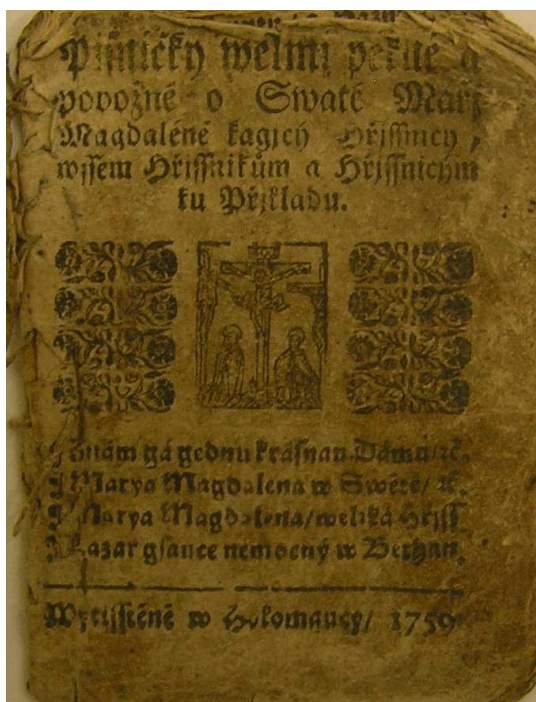 Pjsničky welmi pekné a
pobožné o Swaté Mařj
Magdaléně kagjcý Hřjssnicy,
wssem Hřjssnjkům a Hřjssnicým
ku Přjkladu.
Znám gá gednu krásnau Dámu/ ꝛč.
Marya Magdalena w Swětě/ ꝛč.
Marya Magdalena/ weliká Hřjss
Lazar gsauce nemocný w Bethan.
Wytisstěné w Holomaucy/ 1750